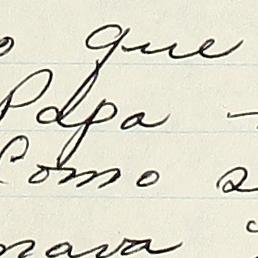 o que
Papa -
Como s
nava